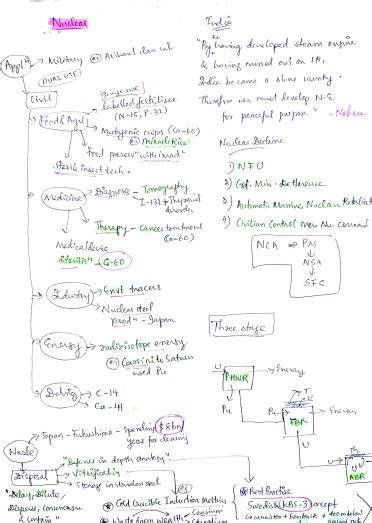 Nuclear
Appl
Military eg Arihant class sub
(DUAL USE)
Civil
Food & Agri
labelled fertiliser
(N-15, P-32)
Mutagenic crops (Co-60)
eg Miracle Rice
Food preserv
Sterile insect tech.
Medicine
Diagnosis - Tomography
I-131 → Thyroid
disorder
Therapy - Cancer treatment
(Co-60)
Medical device
Co-60
Industry
Envt tracers
Nuclear steel
prod - Japan
Energy
radioisotope energy
eg Cassini to Saturn
used Pu
Dating
C-14
Ca-41
Waste
Japan - Fukushima - Spending $8bn
year for cleaning
Disposal
"Defence in depth strategy"
Vitrification
Storage in stainless steel
"Delay, Dilute,
Disperse, Concentrate
& Contain
Cold Crucible Induction Method
India
"By having developed steam engine
& having missed out on IR,
India became a slave county.
Therefore we must develop N.E
for peaceful purpose" - Nehru
Nuclear Doctrine
1) NFU
2) Min. Deterrence
3) Automatic Massive Nuclear Retaliat
4) Civilian Control over Nu. command
NCA ⇒ PM
↓
NSA
↓
SFC
Three stage
U
PHWR
→ Energy
Pu
Pu
T
U
FBR
U
Th
ABR
Best Practise
Swedish KBS-3 Concept